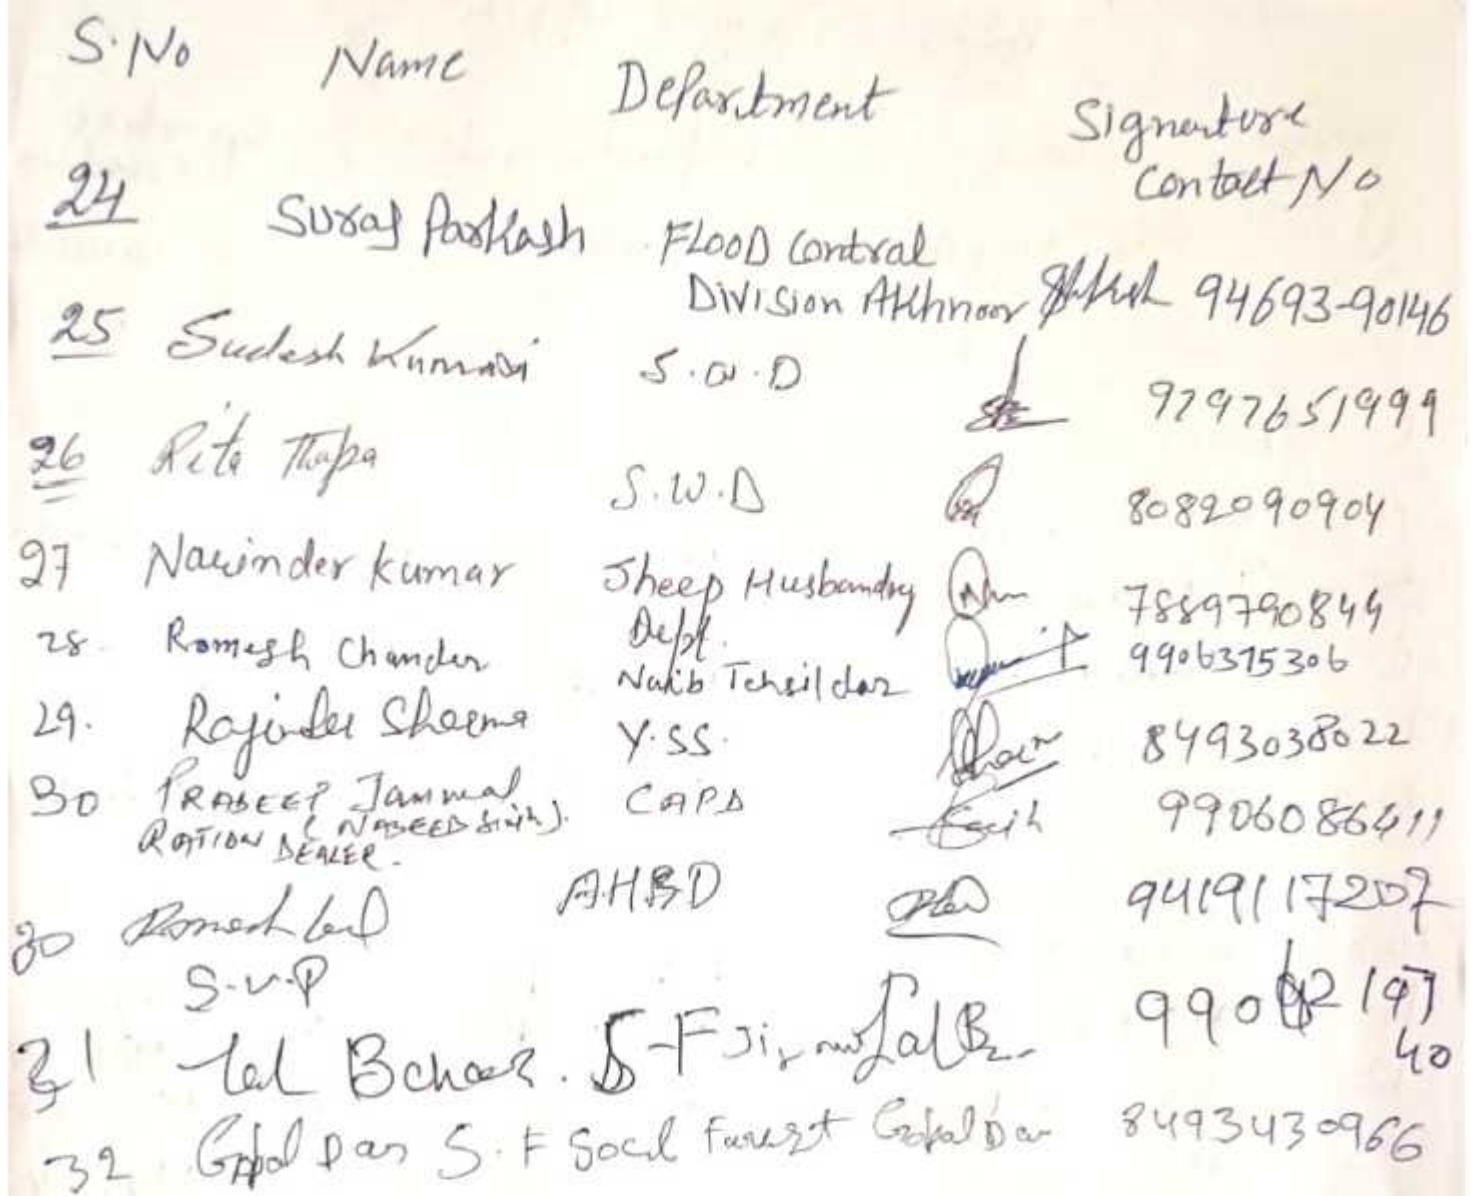 S.No Name Department Signature
Contact No
24 Suraj Parkash FLOOD Contral
Division Akhnoor 94693-90146
25 Sudesh Kumari S.W.D 9797651999
26 Rita Thapa S.W.D 8082090904
27 Nawinder Kumar Sheep Husbandry 7889790849
Deptt.
28. Romesh Chander Naib Tehsildar 9906375306
29. Rajinder Sharma Y.SS. 8493038022
30 PRADEEP Jammal CAPD 9906086411
RATION DEALER.
30 Romesh Lal A.H.B.D 9419117207
S.V.P
31 Lal S-F Lal
40
32 Gopal Das S.F Socil Forest Gopal Das 8493430966